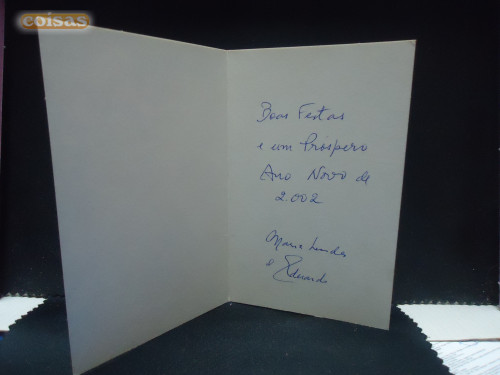 coisas
Boas Festas
e um Próspero
Ano Novo de
2.002
Maria
e Eduardo